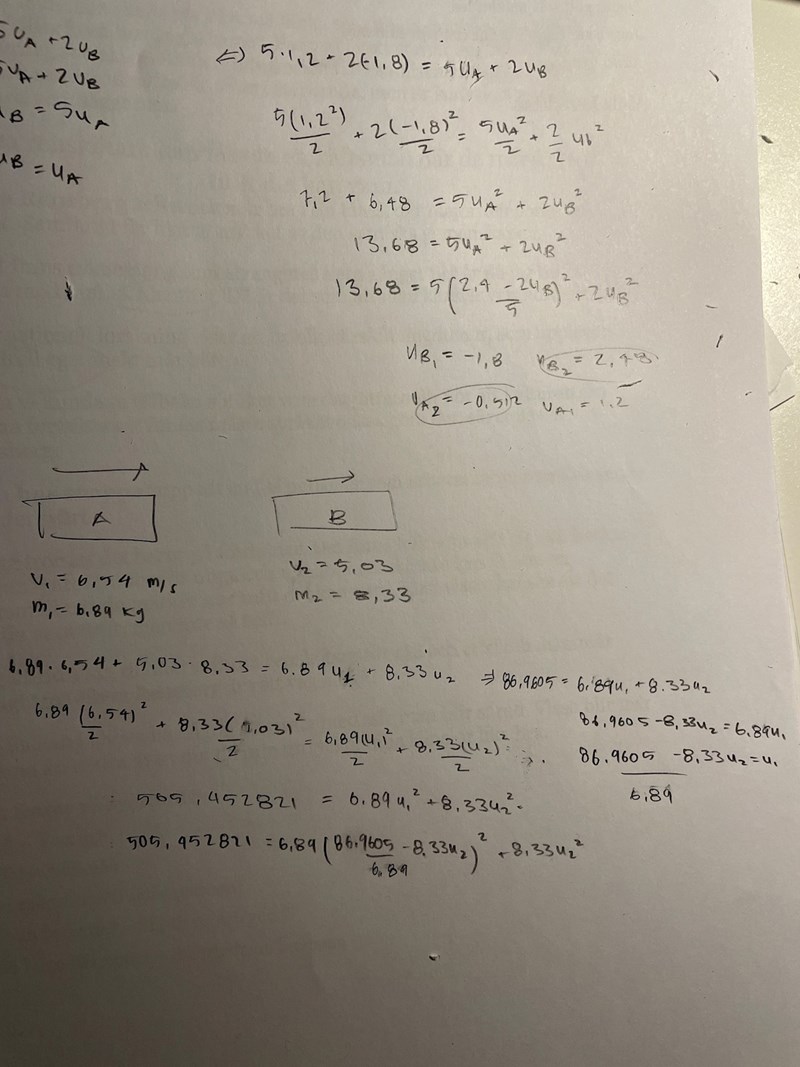 5u_A + 2u_B
5u_A + 2u_B
u_B = 5u_A
u_B = u_A
⇔ 5·1,2 + 2(-1,8) = 5u_A + 2u_B
5(1,2²)/2 + 2(-1,8)²/2 = 5u_A²/2 + 2/2 u_b²
7,2 + 6,48 = 5u_A² + 2u_B²
13,68 = 5u_A² + 2u_B²
13,68 = 5(2,4 - 2u_B/5)² + 2u_B²
u_B₁ = -1,8 u_B₂ = 2,48
u_A₂ = -0,512 u_A₁ = 1,2
A B
v₁ = 6,54 m/s v₂ = 5,03
m₁ = 6,89 kg m₂ = 8,33
6,89·6,54 + 5,03·8,33 = 6.89u₁ + 8,33u₂ ⇒ 86,9605 = 6,89u₁ + 8.33u₂
86,9605 - 8,33u₂ = 6,89u₁
6,89(6,54)²/2 + 8,33(5,03)²/2 = 6,89(u₁)²/2 + 8,33(u₂)²/2
86,9605 - 8,33u₂/6,89 = u₁
505,452821 = 6.89u₁² + 8,33u₂²
505,452821 = 6,89(86,9605 - 8,33u₂/6,89)² + 8,33u₂²